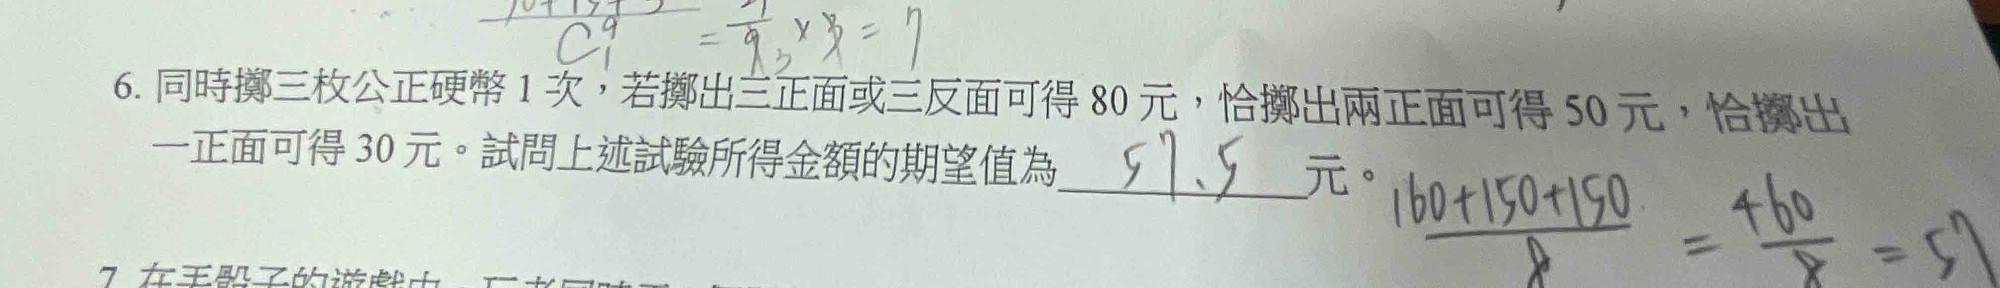 C₁⁹ = 9₃ × 3 = 7
6. 同時擲三枚公正硬幣 1 次，若擲出三正面或三反面可得 80 元，恰擲出兩正面可得 50 元，恰擲出
一正面可得 30 元。試問上述試驗所得金額的期望值為 57.5 元。
160+150+150 / 8 = 460 / 8 = 57
7. 在丟骰子的遊戲中